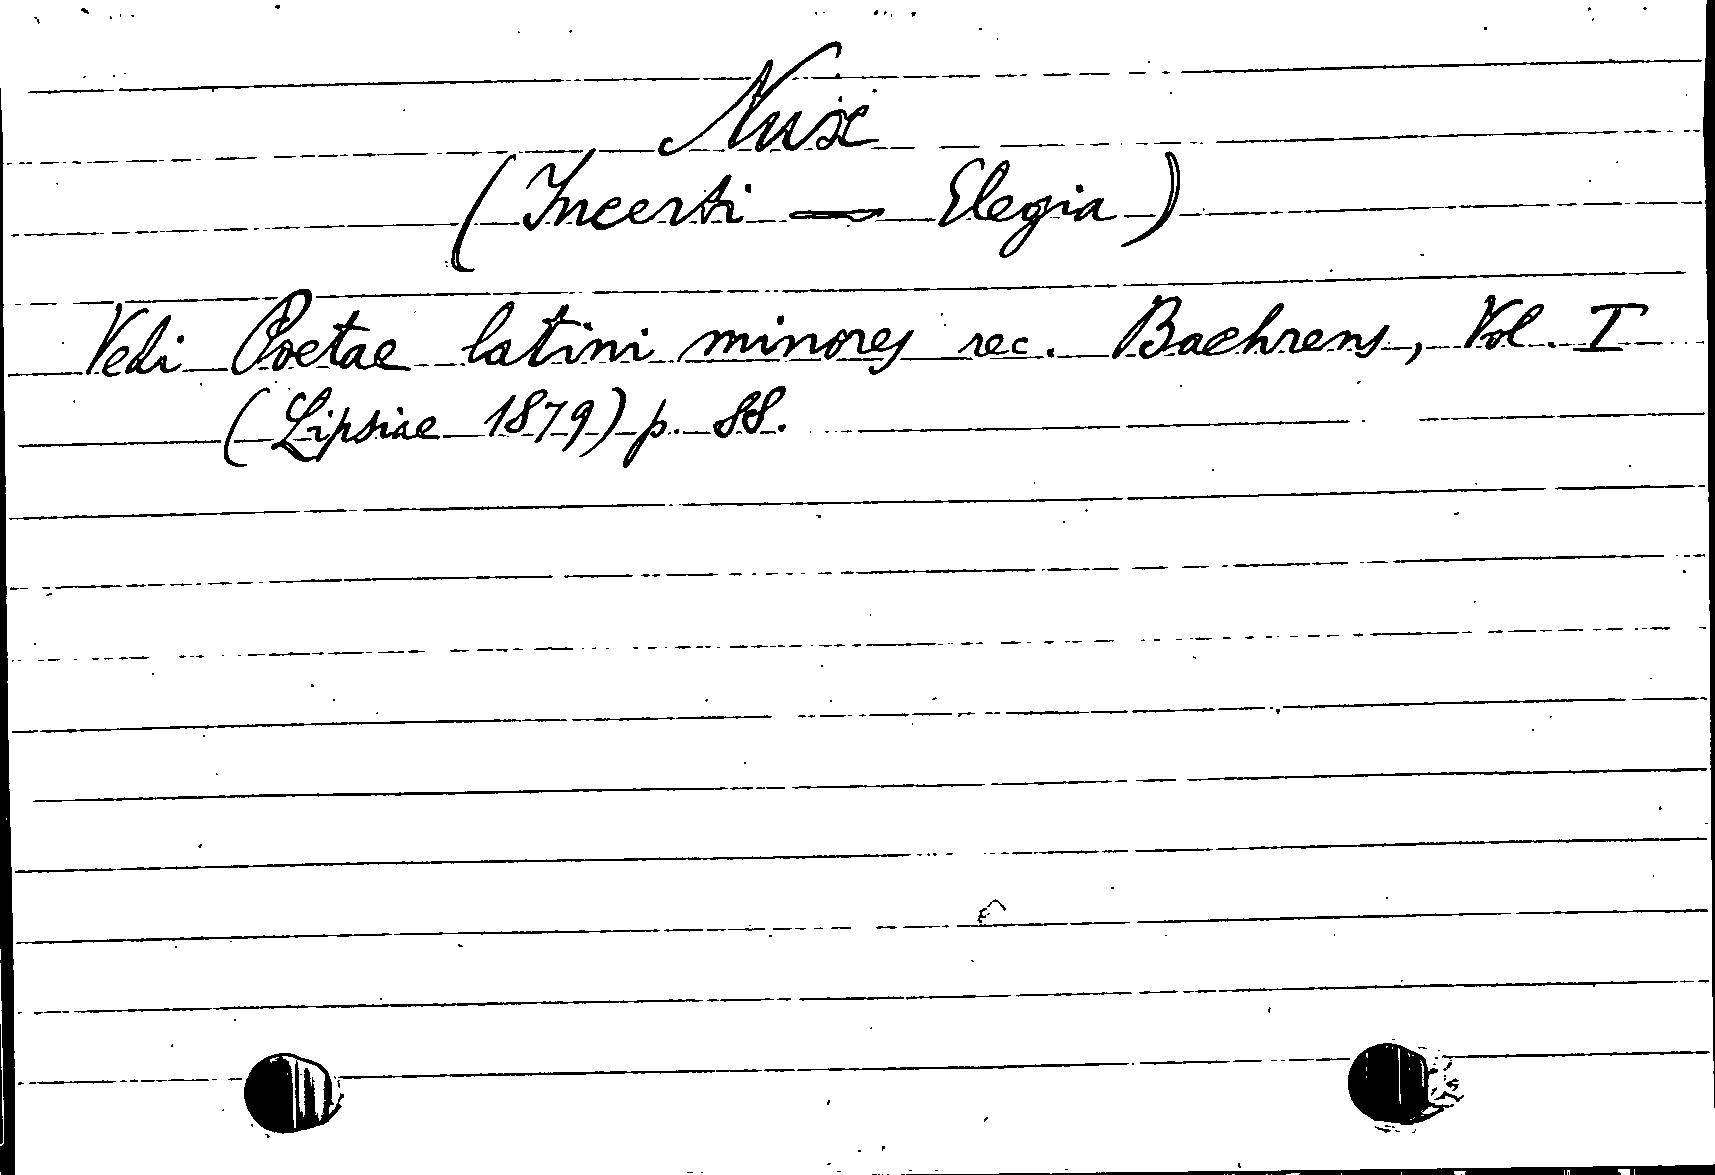 Nux
(Incerti — Elegia)
Vedi Poetae latini minores rec. Baehrens, Vol. I
(Lipsiae 1879) p. 88.